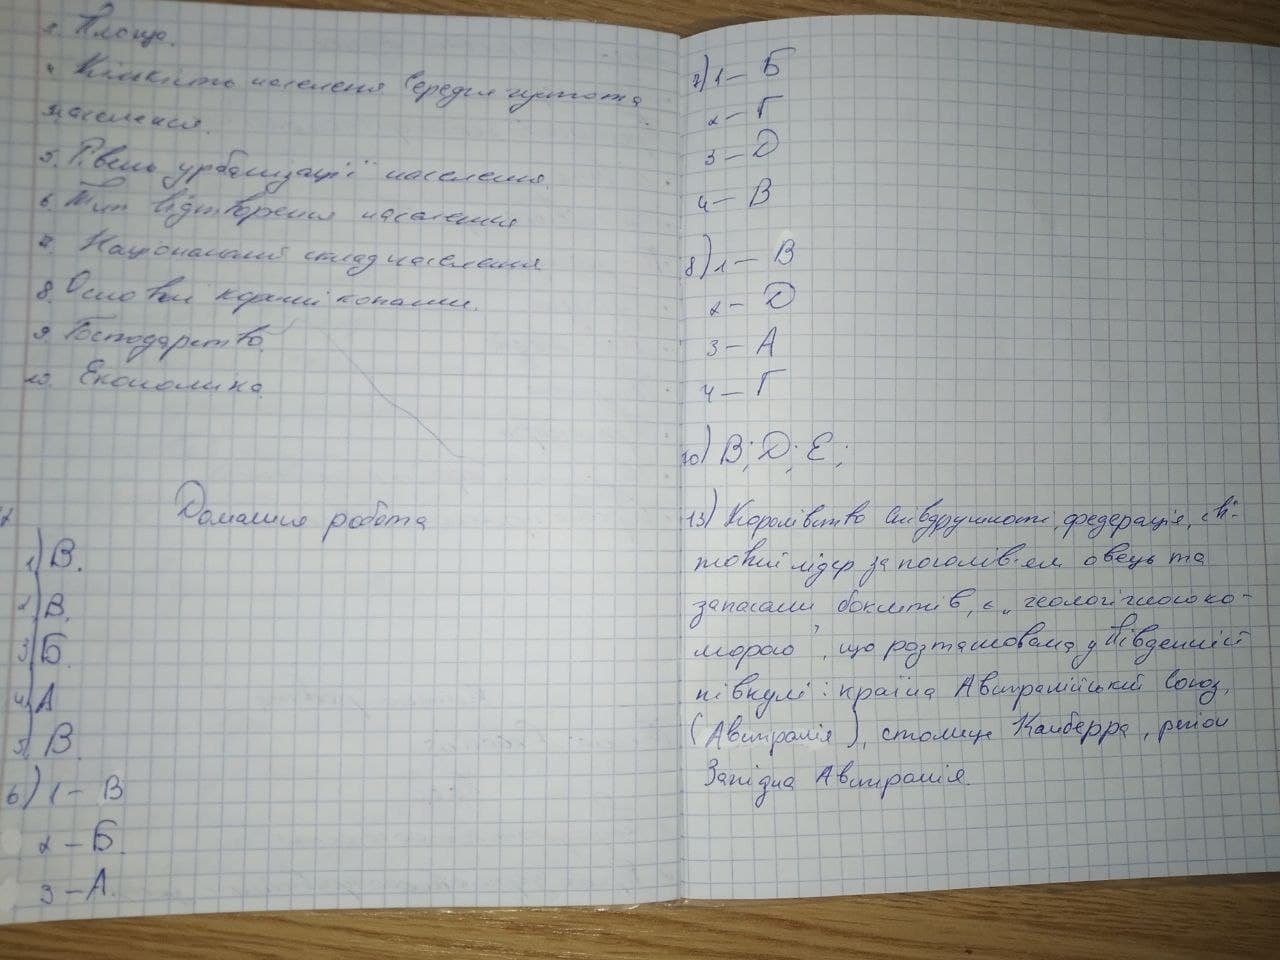 2. Площа.
4. Кількість населеня Середня густота
населення.
5. Рівень урбанізації населення.
6. Тип відтворення населення
7. Національний склад населення
8. Основні корисні копалини.
9. Господарство.
10. Економіка.
Домашня робота
1) В.
2) В.
3) Б.
4) А
5) В.
6) 1 – В
2 – Б.
3 – А.
7) 1 – Б
2 – Г
3 – Д
4 – В
8) 1 – В
2 – Д
3 – А
4 – Г
10) В; Д; Е;
13) Королівство Співдружності, федерація, сві-
товий лідер за поголів'єм овець та
запасами бокситів, є „геологічною ко-
морою", що розташована у Південній
півкулі: країна Австралійський Союз,
(Австралія), столиця Канберра, регіон
Західна Австралія.